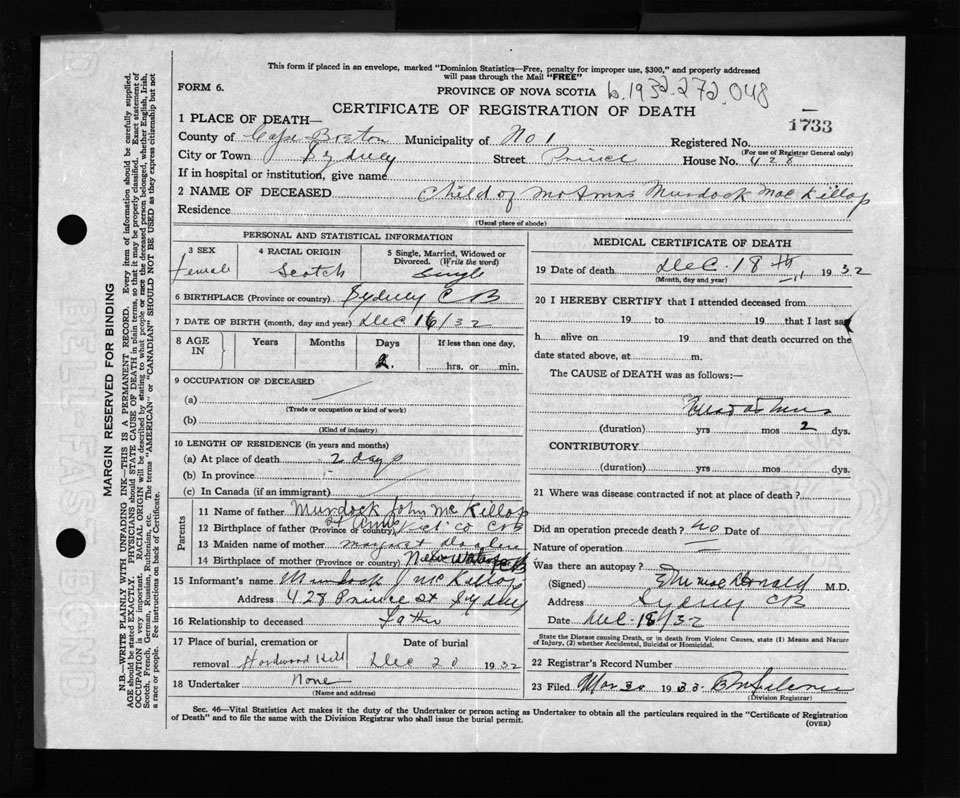 This form if placed in an envelope, marked "Dominion Statistics—Free, penalty for improper use, $300," and properly addressed
will pass through the Mail "FREE"
FORM 6.
PROVINCE OF NOVA SCOTIA b.1932-272,048
CERTIFICATE OF REGISTRATION OF DEATH
1733
1 PLACE OF DEATH—
County of Cape Breton Municipality of No 1 Registered No.
(For use of Registrar General only)
City or Town Sydney Street Prince House No. 428
If in hospital or institution, give name
2 NAME OF DECEASED Child of Murdock MacKillop
Residence
(Usual place of abode)
PERSONAL AND STATISTICAL INFORMATION
3 SEX
female
4 RACIAL ORIGIN
Scotch
5 Single, Married, Widowed or
Divorced. (Write the word)
Single
6 BIRTHPLACE (Province or country) Sydney C B
7 DATE OF BIRTH (month, day and year) Dec 16/32
8 AGE
IN
Years Months Days If less than one day,
2. hrs. or min.
9 OCCUPATION OF DECEASED
(a)
(Trade or occupation or kind of work)
(b)
(Kind of industry)
10 LENGTH OF RESIDENCE (in years and months)
(a) At place of death 2 days
(b) In province
(c) In Canada (if an immigrant)
Parents
11 Name of father Murdock John McKillop
12 Birthplace of father (Province or country) St Anns Vict Co CB
13 Maiden name of mother Margaret
14 Birthplace of mother (Province or country) New Waterford CB
15 Informant's name Murdock J McKillop
Address 428 Prince St Sydney
16 Relationship to deceased Father
17 Place of burial, cremation or Date of burial
removal Hardwood Hill Dec 20 1932
18 Undertaker None
(Name and address)
MEDICAL CERTIFICATE OF DEATH
19 Date of death Dec. 18th 1932
(Month, day and year)
20 I HEREBY CERTIFY that I attended deceased from
19 to 19 that I last saw
h alive on 19 and that death occurred on the
date stated above, at m.
The CAUSE of DEATH was as follows:—
(duration) yrs mos 2 dys.
CONTRIBUTORY
(duration) yrs mos dys.
21 Where was disease contracted if not at place of death?
Did an operation precede death? No Date of
Nature of operation
Was there an autopsy?
(Signed) MacDonald M.D.
Address Sydney CB
Date Dec. 18/32
State the Disease causing Death, or in death from Violent Causes, state (1) Means and Nature
of Injury, (2) whether Accidental, Suicidal or Homicidal.
22 Registrar's Record Number
23 Filed Mar 30 1933
(Division Registrar)
Sec. 46—Vital Statistics Act makes it the duty of the Undertaker or person acting as Undertaker to obtain all the particulars required in the "Certificate of Registration
of Death" and to file the same with the Division Registrar who shall issue the burial permit.
(OVER)
MARGIN RESERVED FOR BINDING
N.B.—WRITE PLAINLY WITH UNFADING INK—THIS IS A PERMANENT RECORD. Every item of information should be carefully supplied.
AGE should be stated EXACTLY. PHYSICIANS should STATE CAUSE OF DEATH in plain terms, so that it may be properly classified. Exact statement of
OCCUPATION is very important. RACIAL ORIGIN will be described by stating to what people or race the deceased person belonged, whether English, Irish,
Scotch, French, German, Russian, Ruthenian, etc. The terms "AMERICAN" or "CANADIAN" SHOULD NOT BE USED as they express citizenship but not
a race or people. See instructions on back of Certificate.